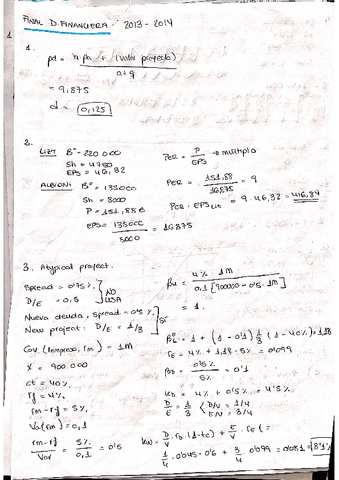 FINAL D. FINANCIERA 2013 - 2014
1
1.
pd = n pa + (valor proyecto)
a + q
= 9,875
d = 0,125
2.
LIZT Bº - 220 000
Sh = 4750
EPS = 46,32
PER = P / EPS → múltiplo
ALBIONI Bº = 135000
Sh = 8000
P = 151,88 €
EPS = 135000 / 8000 = 16'875
PER = 151,88 / 16'875 = 9
PER · EPS = 9 · 46,32 = 416,84
3. Atypical project.
Spread = 0'75 %
D/E = 0,5
NO USA
Nueva deuda, spread = 0'5 %
New project: D/E = 1/3
SÍ
Cov (empresa, rm) = 1M
X = 900.000
ct = 40%
rf = 4%
rm - rf = 5%
Va(rm) = 0,1
rm - rf / Var = 5% / 0,1 = 0'5
βu = 4% · 1M / 0,1 [900000 - 0'5 · 1M]
= 1.
= 1 + (1 - 0'1) 1/3 (1 - 40%) = 1,18
rE = 4% + 1,18 · 5% = 0'099
βD = 0'5% / 5% = 0'1
KD = 4% + 0'5% = 4'5%
D/E = 1/3 D/V = 1/4
E/V = 3/4
KW = D/V · rD · (1-tc) + E/V · rE =
1/4 · 0'045 · 0'6 + 3/4 · 0'099 = 0'081 = 8'1%